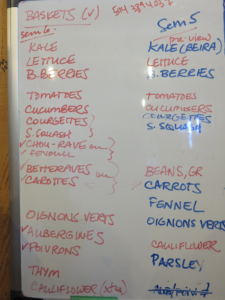 BASKETS (✓)
Sem 6.
KALE
LETTUCE
B. BERRIES
TOMATOES
CUCUMBERS
COURGETTES }
S. SQUASH }
✓ CHOU-RAVE ou }
✓ FENOUIL }
✓ BETTERAVES ou }
✓ CAROTTES }
OIGNONS VERTS
✓ AUBERGINES
✓ POIVRONS
THYM
CAULIFLOWER (xtra)
Sem 5
KALE (BEIRA)
LETTUCE
B. BERRIES
TOMATOES
CUCUMBERS
COURGETTES
S. SQUASH
BEANS, GR
CARROTS
FENNEL
OIGNONS VERTS
CAULIFLOWER
PARSLEY